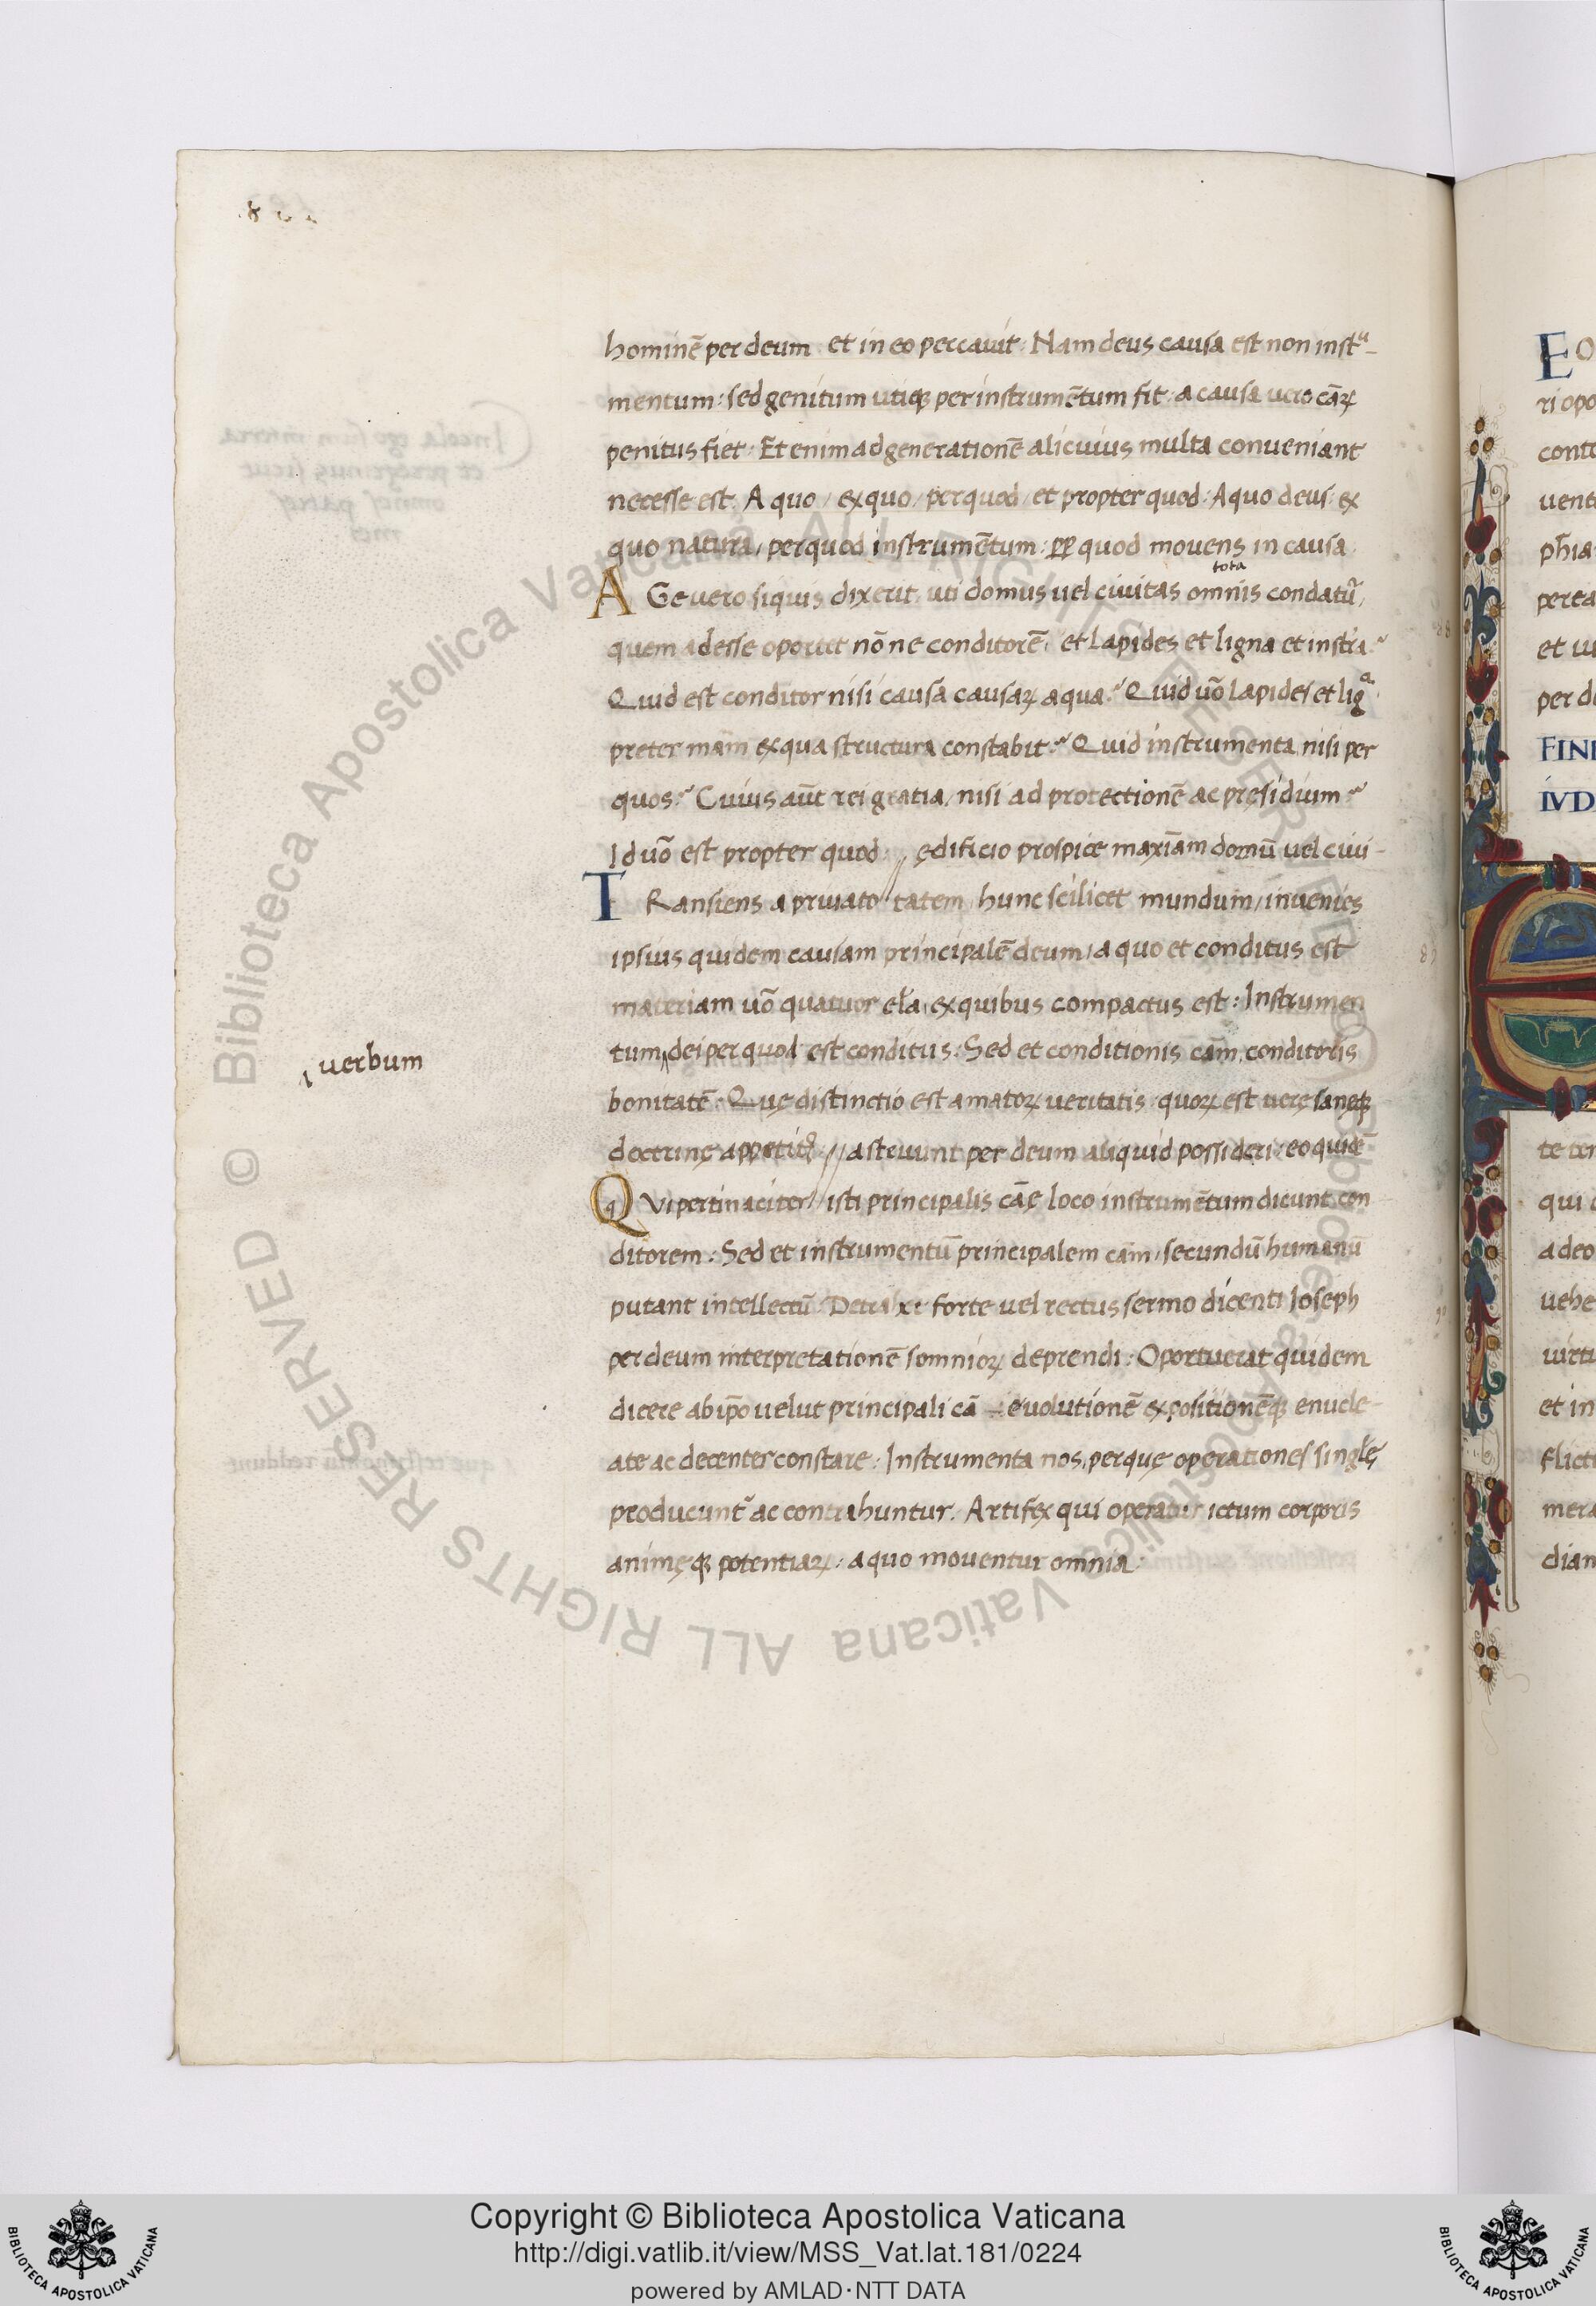 hominē per deum et in eo peccavit: Nam deus causa est non inst̄ᵃ-
mentum: sed genitum utiqꝫ per instrumētum fit: a causa vero cāꝝ
penitus fiet: Et enim ad generationē alicuius multa conveniant
necesse est. A quo / ex quo / per quod / et propter quod: A quo deus: ex
quo natura / per quod instrumētum: ꝓp quod movens in causa
tota
AGe vero siquis dixerit uti domus vel civitas omnis condatᷣ /
quem adesse oportet nōne conditorē / et lapides et ligna et instrᷓa?
Quid est conditor nisi causa causaꝝ a qua? Quid vō lapides et ligᵃ
preter mām ex qua structura constabit? Quid instrumenta nisi per
quos? Cuius aūt rei gratia / nisi ad protectionē ac pręsidium?
Id vō est propter quod // ędificio prospice maxīam domū vel civi-
TRansiens a privato // tatem hunc scilicet mundum / invenies
ipsius quidem causam principalē deum / a quo et conditus est
materiam vō quatuor eła / ex quibus compactus est: Instrumen
tum dei per quod est conditus: Sed et conditionis cām conditoris
verbum
bonitatē: Quę distinctio est amatoꝝ veritatis quoꝝ est verę sanęqꝫ
doctrinę appetitꝰ // astruunt per deum aliquid possideri eo quidē
QVi pertinaciter // isti principalis cāę loco instrumētum dicunt con
ditorem: Sed et instrumentū principalem cām / secundū humanū
putant intellectū: Detraxit forte vel rectus sermo dicenti Ioseph
per deum interpretationē somnioꝝ deprendi: Oportuerat quidem
dicere ab ip̄o velut principali cā evolutionē expositionēqꝫ enucle-
ate ac decenter constare: Instrumenta nos, per quę operationes singłę
producuntᷣ ac contrahuntur. Artifex qui operatur ictum corporis
animęqꝫ potentiaꝝ: a quo moventur omnia:
EO
ri opo
conte
vent
ph̄ia
perea
et vi
per d
FINI
IVD
te ter
qui
a deo
vehe
virtu
et in
flict
mera
dian
© Biblioteca Apostolica Vaticana ALL RIGHTS RESERVED © Biblioteca Apostolica Vaticana ALL RIGHTS RESERVED
Copyright © Biblioteca Apostolica Vaticana
http://digi.vatlib.it/view/MSS_Vat.lat.181/0224
powered by AMLAD·NTT DATA
BIBLIOTECA APOSTOLICA VATICANA
BIBLIOTECA APOSTOLICA VATICANA